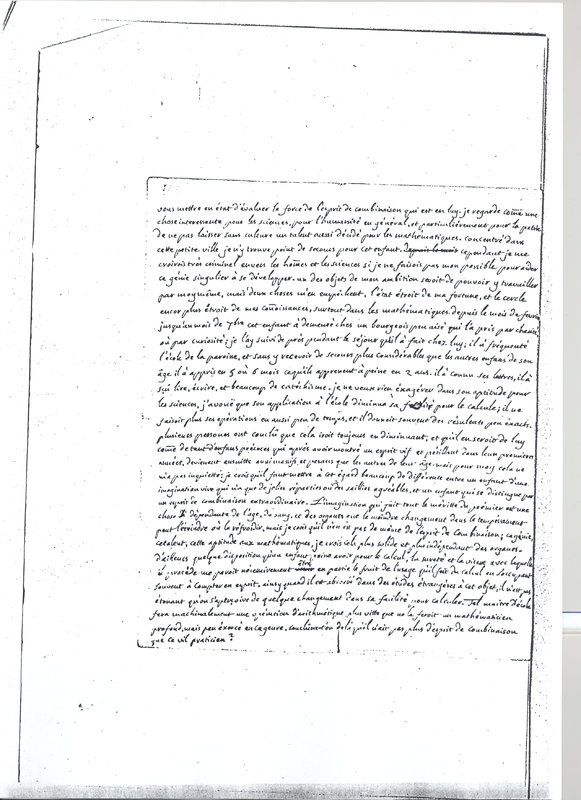 vous mettre en état d'évaluer la force de l'esprit de combinaison qui est en luy. je regarde come une
chose interessante pour les sciences, pour l'humanité en général, et particulièrement pour la patrie
de ne pas laisser sans culture un talent aussi décidé pour les mathématiques. concentré dans
cette petite ville je n'y trouve point de secours pour cet enfant. cependant je me
croirois très criminel envers les homes et les sciences si je ne faisois pas mon possible pour aider
ce génie singulier à se développer. un des objets de mon ambition seroit de pouvoir y travailler
par moy même, mais deux choses m'en empêchent, l'état étroit de ma fortune, et le cercle
encor plus étroit de mes conoissances, surtout dans les mathématiques. depuis le mois de fevrier
jusqu'au mois de 7bre cet enfant a demeuré chés un bourgeois peu aisé qui l'a pris par charité
où par curiosité; je l'ay suivi de près pendant le séjour qu'il a fait chez luy; il a fréquenté
l'école de la paroine, et sans y recevoir de secours plus considérables que les autres enfans de son
âge il a appris en 5 où 6 mois ce qu'ils apprenent à peine en 2 ans. il a connu ses lettres, il a
sçu lire, écrire, et beaucoup de catéchisme. je ne veux rien exagérer dans son aptitude pour
les sciences, j'avoüe que son application à l'école diminua sa facilité pour le calcule; il ne
faisoit plus ses opérations en aussi peu de temps, et il donnoit souvent des résultats peu exacts.
plusieurs persones ont conclu que cela iroit toujours en diminuant, et qu'il en seroit de luy
come de tant d'enfans précoces qui après avoir montré un esprit vif et pétillant dans leur premieres
années, devienent ensuitte aussi massifs, et pesans que les autres de leur âge. mais pour moy cela ne
m'a pas inquietté; je crois qu'il faut mettre à cet égard beaucoup de différence entre un enfant d'une
imagination vive qui n'a que de jolies réparties où des saillies agréables, et un enfant qui se distingue par
un esprit de combinaison extraordinaire. L'imagination qui fait tout le mérite du premier est une
chose dépendante de l'âge, du sang, et des organes que le moindre changement dans le tempérament
peut éteindre où la réfroidir, mais je crois qu'il n'en est pas de même de l'esprit de combinaison; ce génie,
ce talent, cette aptitude aux mathématiques, je crois est plus solide et plus indépendant des organes.
d'ailleurs quelque disposition qu'un enfant puisse avoir pour le calcul, la sureté et la vitesse avec laquelle
il y procède me paroit nécessairement être en partie le fruit de l'usage qu'il fait du calcul en s'occupant
souvent à compter en esprit, ainsy quand il est absorbé dans des études étrangères à cet objet, il n'est pas
étonnant qu'on s'apperçoive de quelque changement dans sa facilité pour calculer. Tel maitre d'école
fera machinalement une opération d'arithmétique plus vitte que ne la feroit un mathématicien
profond, mais peu éxercé en ce genre, conclura-t-on delà qu'il n'ait pas plus d'esprit de combinaison
que ce vil praticien?